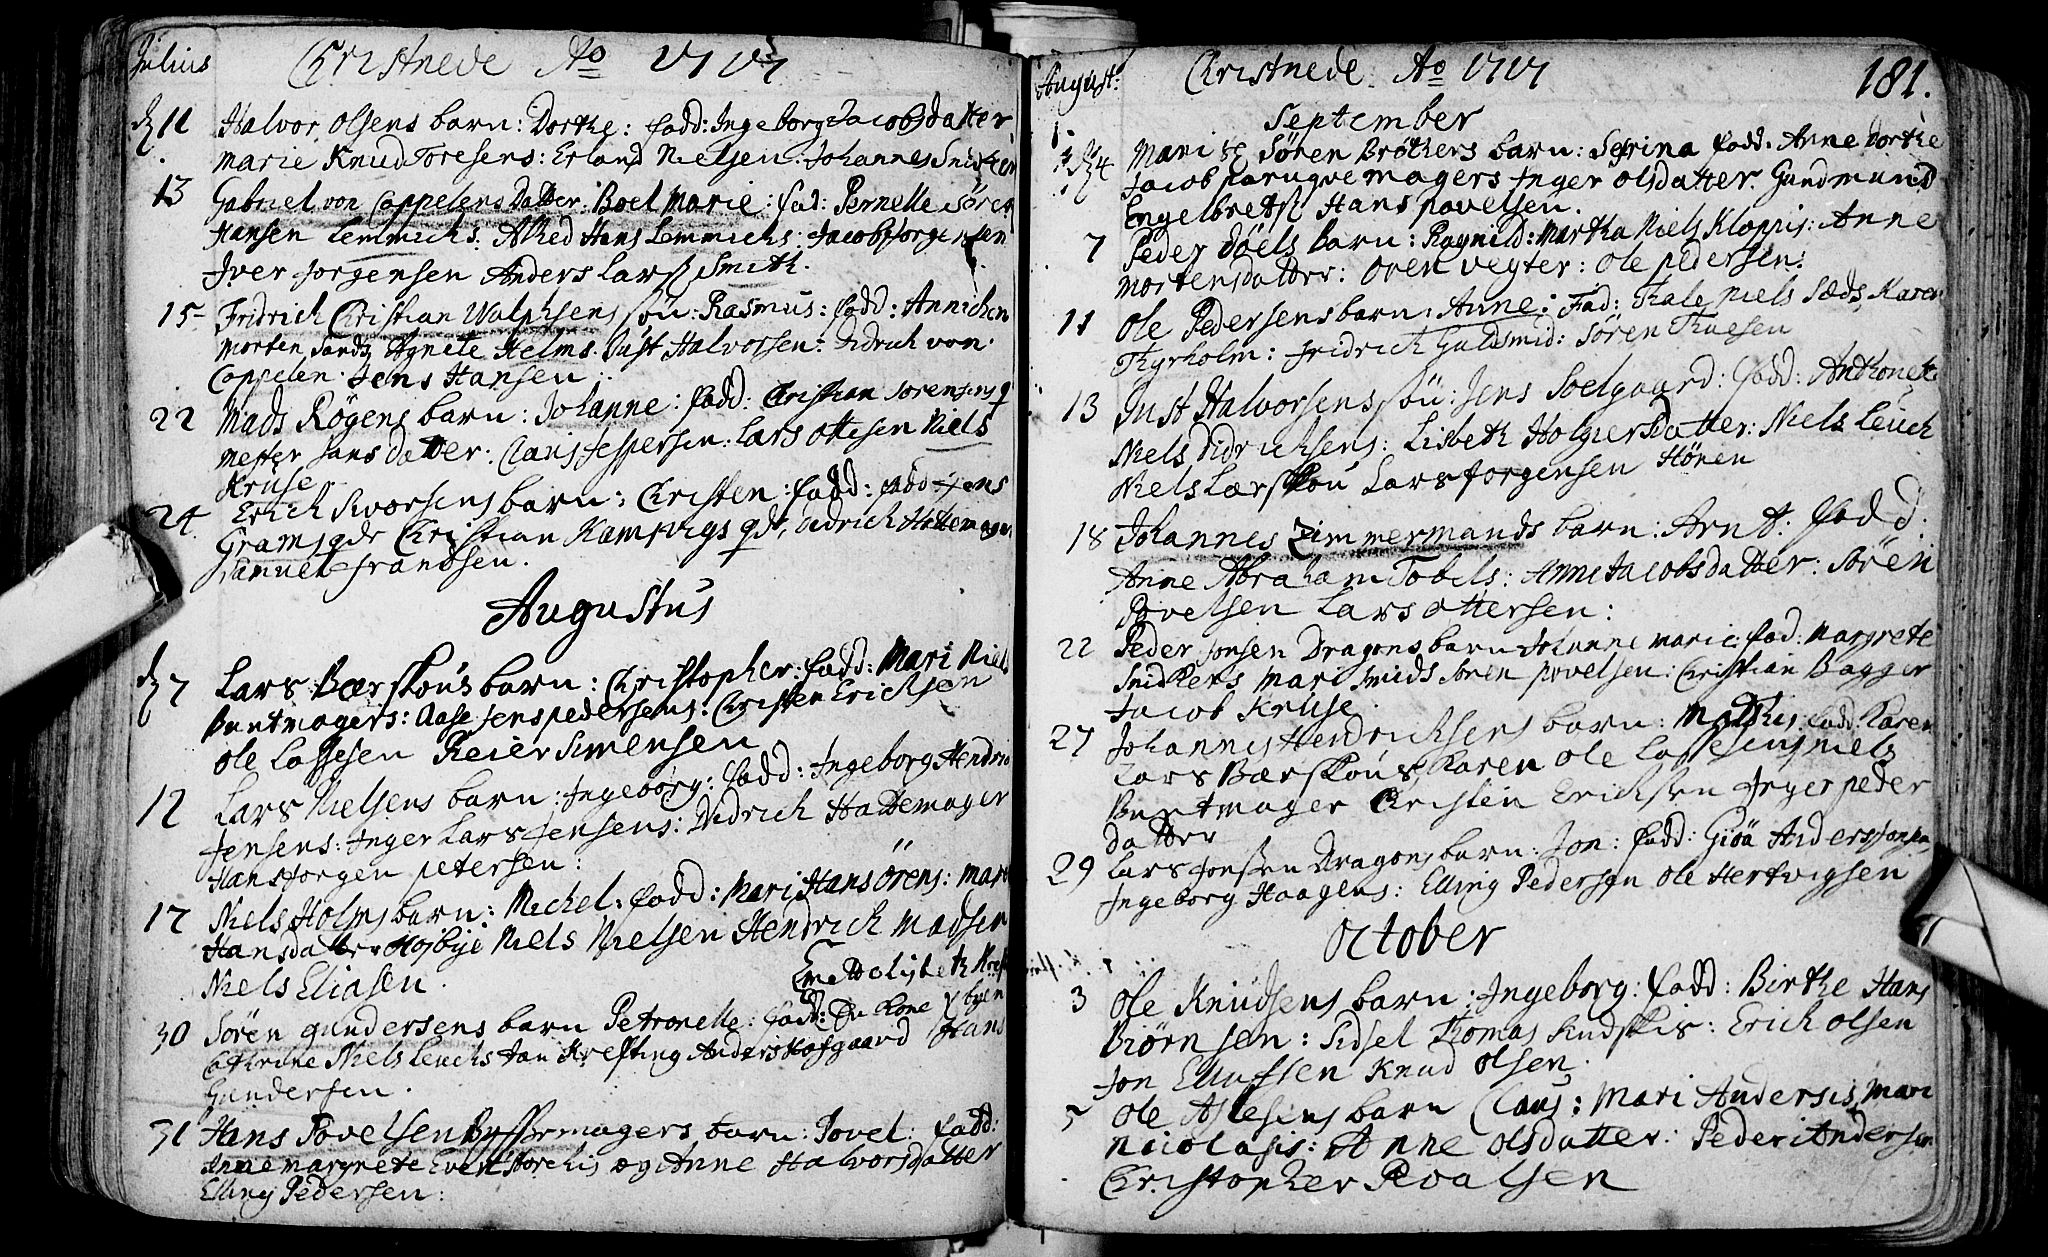 Julius Christnede Ao 1717
11 Halvor Olsens barn: Dorthe: fadd: Ingeborg Jacobsdatter
marie Knud Toresens: Erland Nielsen: Johannes Snidker
13 Gabriel von Cappelens Datter: Boel Marie: fad: Pernelle Sören
Hansen Lemmichs: Alhed Hans Lemmichs: Jacob Jorgensen
Jver Jorgensen Anders Larss Smith.
15 Fridrich Christian Walphsens sön: Rasmus: fadd: Annichen
morten Sandz Agnete Helms. Just Halvorsen: Didrich von
Cappelen. Jens Hansen.
22 Mads Rögens barn: Johanne: fadd: Christian Sorensens q
mester Jans datter. Claus Jespersen: Lars Ottesen Niels
Kruse
24 Erich Jvorsens barn: Christen: fadd: Jens
Grams qde Christian Kamphigs qde, didrich Hattemager
Samuel frandsen.
Augustus
7 Lars Bærskous barn: Christopher: fadd: Mari Niels
Buntmagers: Aase Jens pedersens: Christen Ericksen
Ole Lassesen Reier Simensen
12 Lars Nielsens barn: Ingeborg: fadd: Ingeborg Hendrich
Jensens: Inger Lars Jensens: Didrich Hattemager
Hans Jorgen petersen:
17 Niels Holms barn: Michel: fadd: Mari Hans örens: Mart
Hansdatter Hojbye Niels Nielsen Hendrich Madsen
Niels Eliasen.
30 Sören gundersens barn Petronelle: fadd:
Cathrine Niels Leuchs Jan Krefting Anders Hofgaard Hans
Gundersen.
31 Hans Povelsen Bysssemagers barn: Povel: fadd:
Anne margrete Evert og Anne Halvorsdatter
Elling Pedersen:
August: Christnede. Ao 1717 181.
September
4 Mari Sören Bröthers barn: Sefrina fadd. Anne dorthe
Jacob paruqvemagers Inger Olsdatter. Gundmund
Engelbretss Hans povelsen.
7 Peder döels Barn: Ragnild: Martha Niels Kloppis: Anne
mortensdatter: Oven vegter: Ole pedersen.
11 Ole Pedersens barn: Anne: Fad: Thale Niels Sæds, Karen
Thyrholm: fridrich Guldsmid: Sören Thuesen
13 Just Halvorsens sön: Jens Soelgaard: fadd: Anthonette
Niels Didrichsens: Lisbeth Holgiersdatter: Niels Leuch
Niels Lærskou Lars Jorgensen Hören
18 Johannes Zimmermands barn: Arnt. fadd.
Anne Abraham Tobels: Anne Jacobsdatter: Sören
Povelsen Lars Ottersen:
22 Peder Jonsen Dragons barn Johanne marie: fad: Margrete
Snidkers Mari Smids Sören povelsen: Christian Bagger
Jacob Kruse.
27 Johannes Hendrichsens barn: Mathis fadd: Karen
Lars Bærskous, Karen Ole Lassesens Niels
Buntmager Christen Ericksen Inger peder
datter
29 Lars Jonssen Dragons barn: Jon: fadd: Giöa Anders
Ingeborg Haagens: Elling Pedersen Ole Hertvigsen
October
3 Ole Knudsens barn: Ingeborg: fadd: Birthe Hans
Biörnsen: Sidsel Thomas Kudskis: Erich Olsen
Jon Ellufsen Knud Olsen.
5 Ole Aslesens barn Claus: Mari Andersis, Mari
Nicolasis: Anne Olsdatter: Peder Andersen
Christopher Roalsen